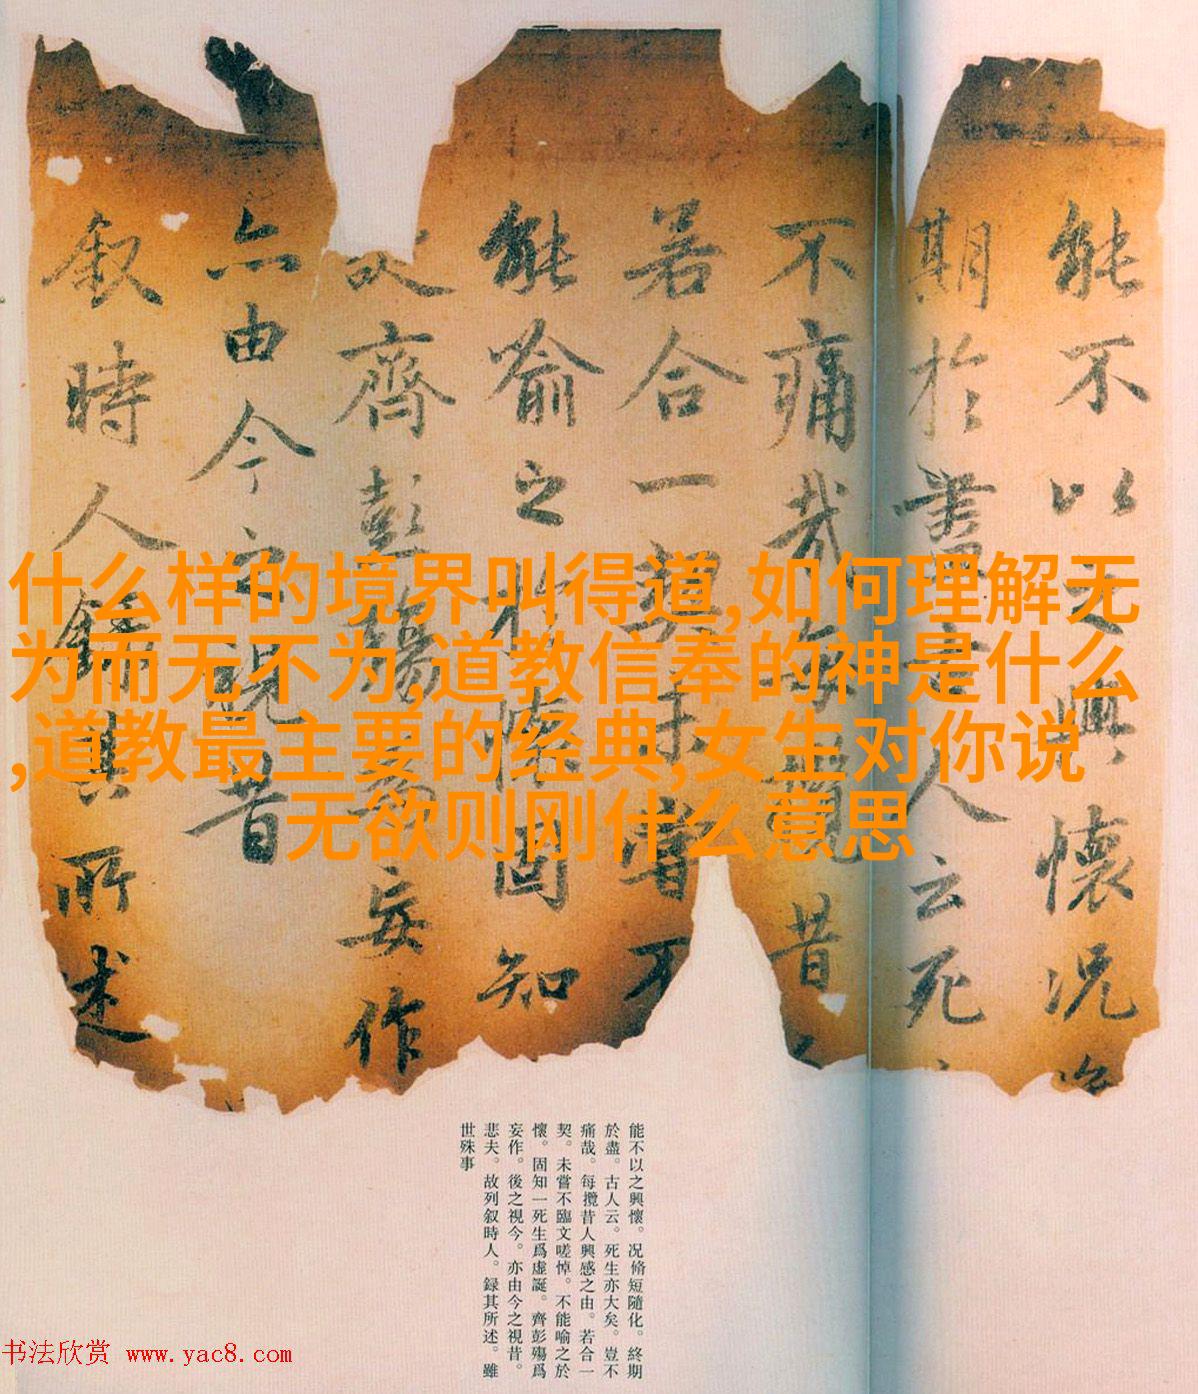 能不以之興懷况
期於盡古人云死
不痛哉每攬昔
若合一契未嘗不
能喻之於懷固知
齊彭殤為妄作
亦由今之視昔
叙時人錄其所述
什么样的境界叫得道,如何理解无
为而无不为,道教信奉的神是什么
,道教最主要的经典,女生对你说
无欲则刚什么意思
能不以之興懷。况脩短隨化。終期
於盡。古人云。死生亦大矣。豈不
痛哉。每攬昔人興感之由。若合一
契。未嘗不臨文嗟悼。不能喻之於
懷。固知一死生爲虛誕。齊彭殤爲
妄作。後之視今。亦由今之視昔。
悲夫。故列叙時人。録其所述。雖
世殊事
书法欣赏 www.yac8.com